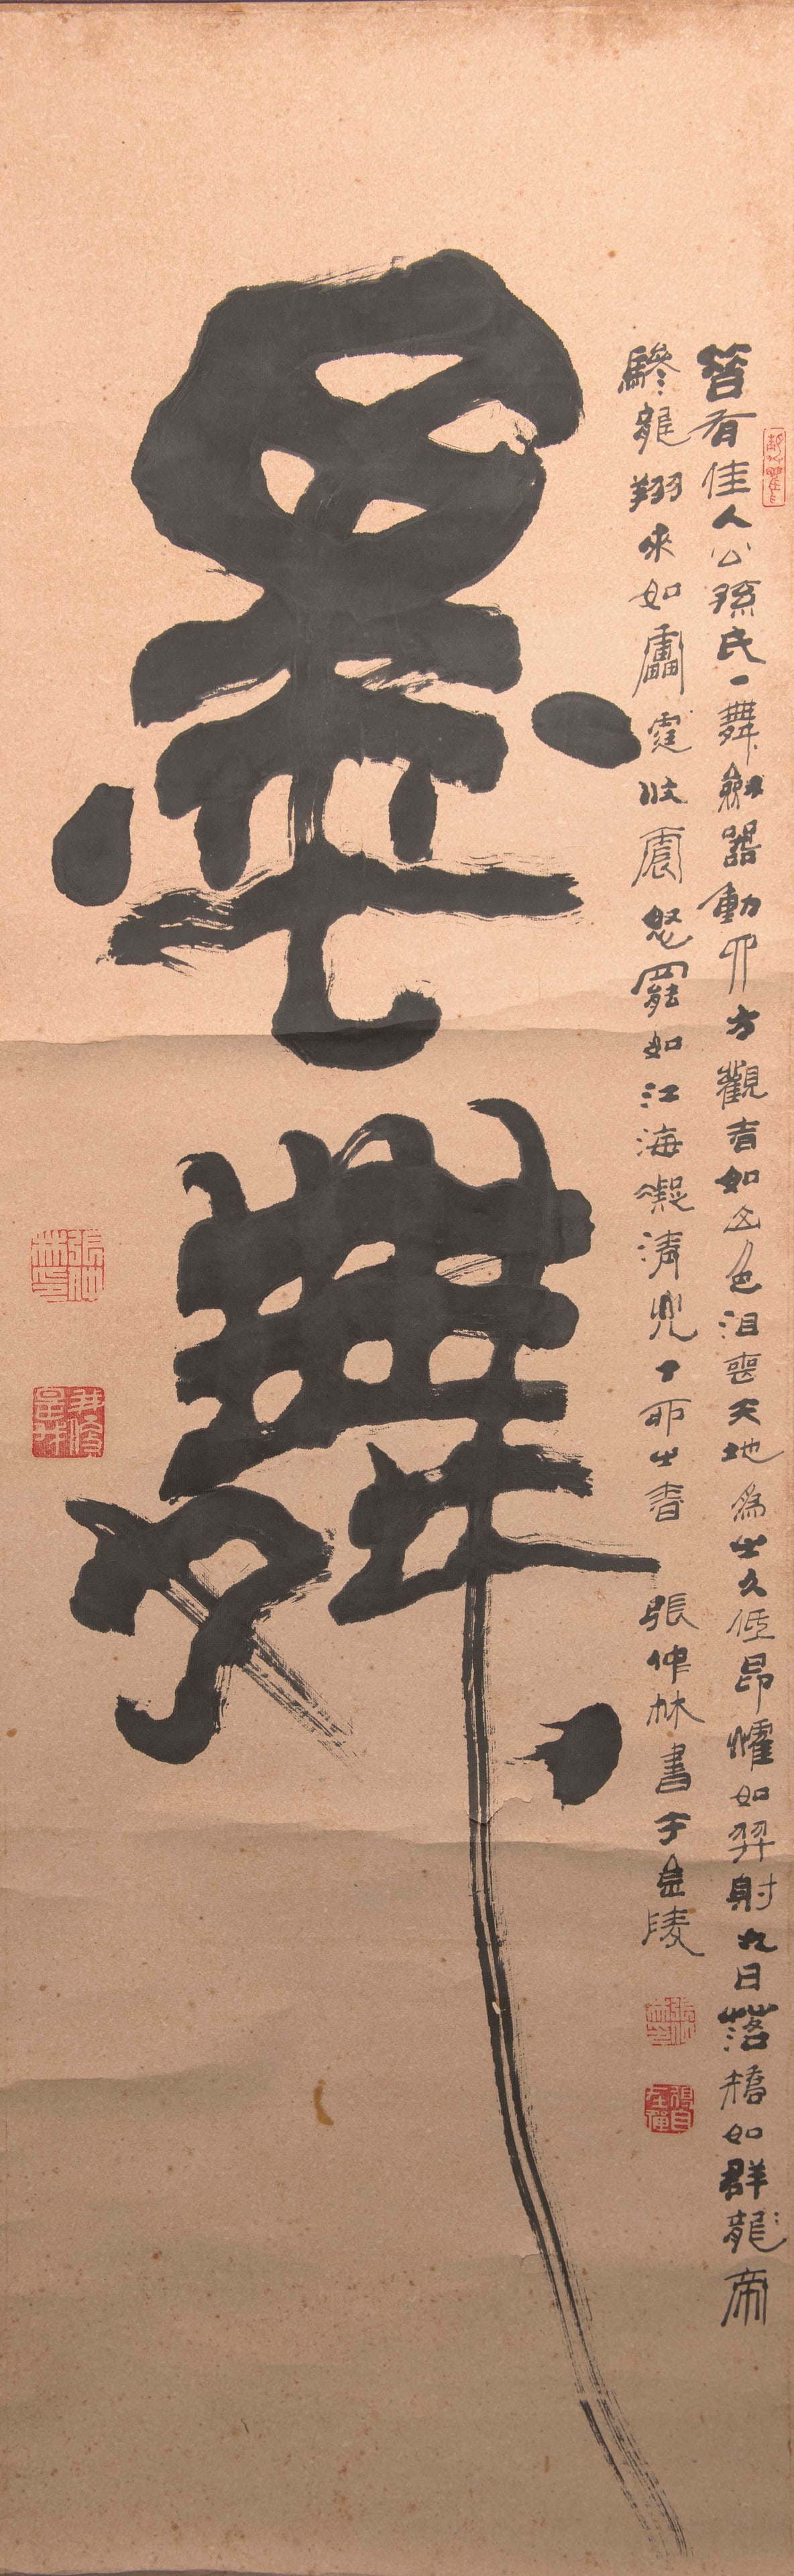 墨舞
昔有佳人公孫氏一舞劍器動四方觀者如山色沮喪天地為之久低昂燿如羿射九日落矯如群龍帝
驂龍翔來如雷霆收震怒罷如江海凝清光丁卯之春 張仲林書于金陵
張仲林印